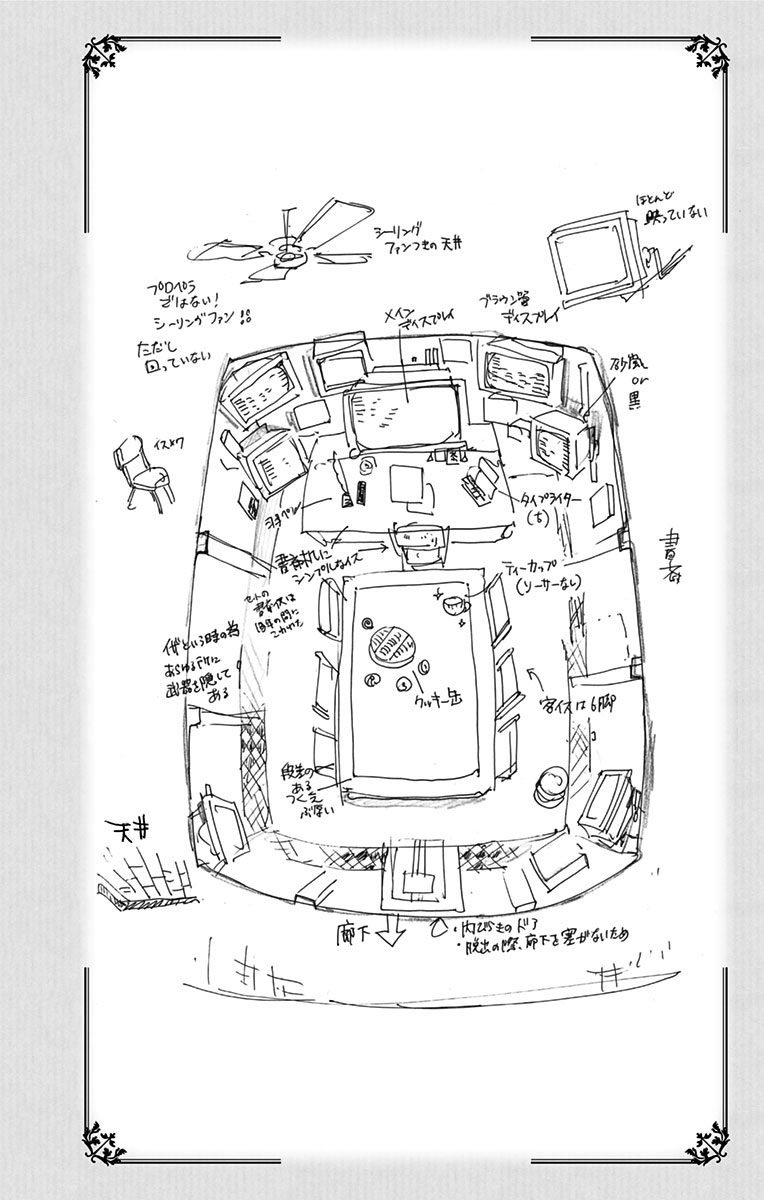 シーリング
ファンつきの天井
ほとんど
映っていない
プロペラ
ではない!
シーリングファン!!
ただし
回っていない
メイン
ディスプレイ
ブラウン管
ディスプレイ
砂嵐
or
黒
タイプライター
(古)
書斎机に
シンプルなイス
ティーカップ
(ソーサーなし)
書斎
セットの
イザという時の為
あらゆる所に
武器を隠して
ある
クッキー缶
客イスは6脚
段差の
ある
つくえ
ぶ厚い
天井
廊下
・内びらきのドア
・脱出の際、廊下を塞がないため